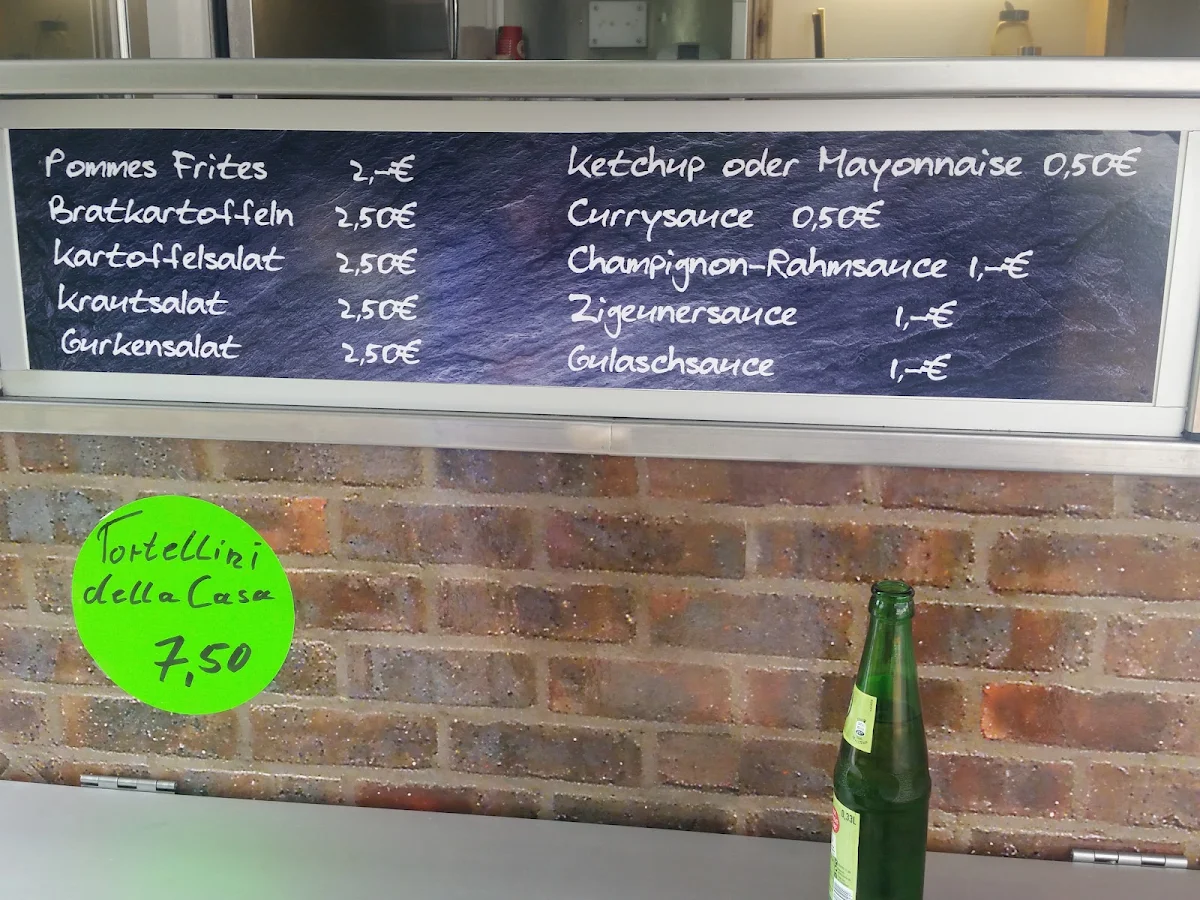 Pommes Frites 2,-€
Bratkartoffeln 2,50€
Kartoffelsalat 2,50€
Krautsalat 2,50€
Gurkensalat 2,50€
Ketchup oder Mayonnaise 0,50€
Currysauce 0,50€
Champignon-Rahmsauce 1,-€
Zigeunersauce 1,-€
Gulaschsauce 1,-€
Tortellini
della Casa
7,50
0,33L